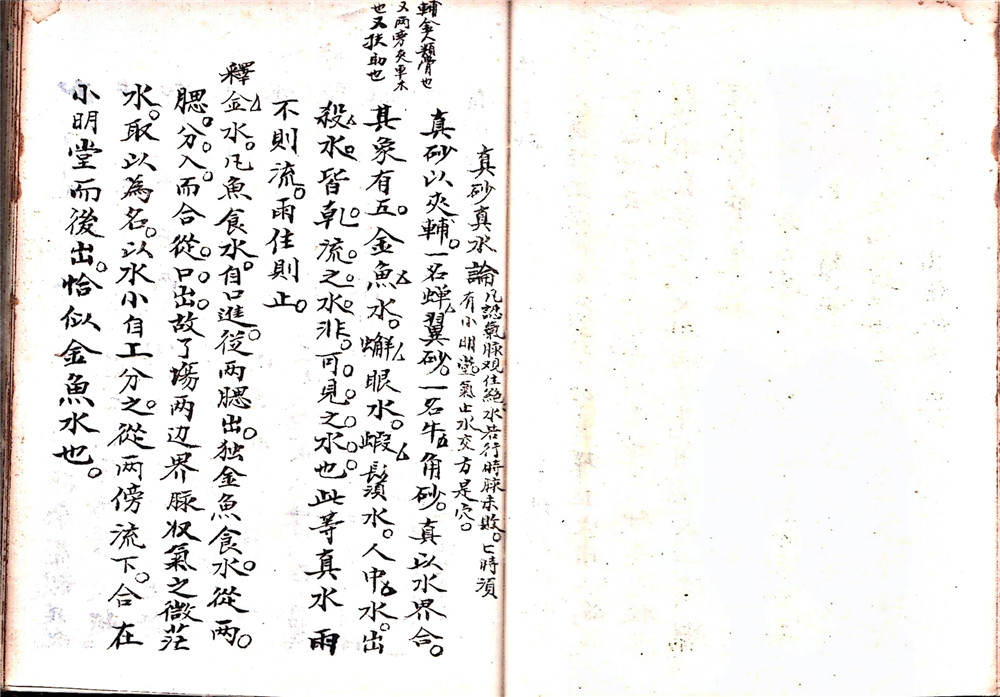 真砂真水論
凡認氣脉观住絶水若行時脉未敗。匕時須
有小明堂。氣止水交方是穴。
真砂以夾輔。一名蟬翼砂。一名牛角砂。真以水界合。
其象有五。金魚水。蠏眼水。蝦鬚水。人中水。出
殺水。皆乹流之水。非可見之水也此等真水雨
不則流。雨住則止。
輔金人類骨也
又两旁夾車木
也又扶助也
釋金水。凡魚食水。自口進。從两腮出。独金魚食水。從两
腮。分入而合從口出。故了塲两边界脉収氣之微茫
水。取以為名。以水小自工分之。從两傍流下。合在
小明堂而後出。恰似金魚水也。